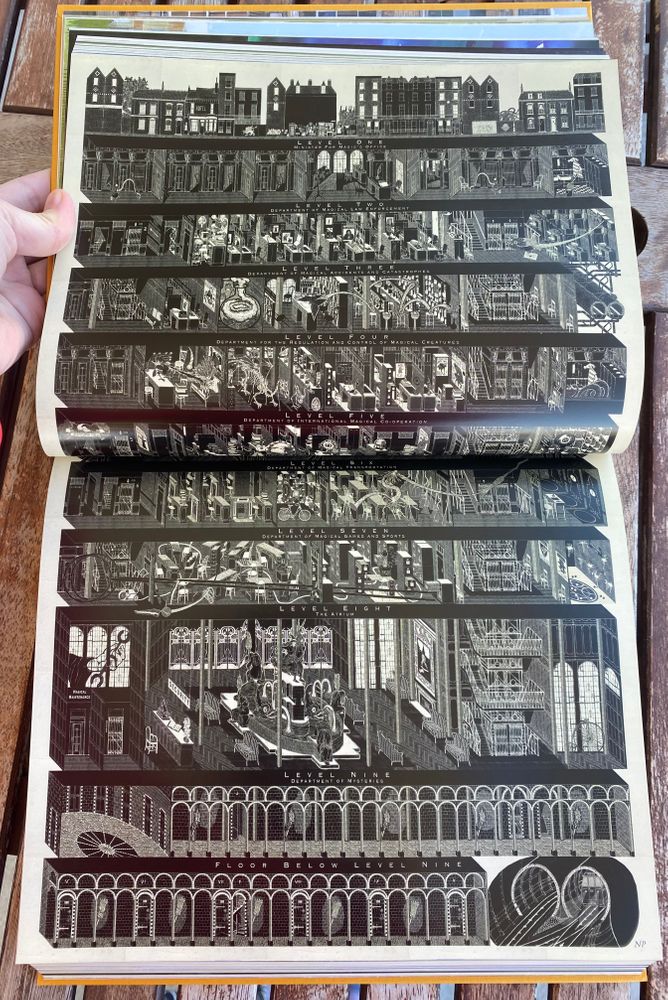 LEVEL ONE
MINISTER FOR MAGIC OFFICE
LEVEL TWO
DEPARTMENT OF MAGICAL LAW ENFORCEMENT
LEVEL THREE
DEPARTMENT OF MAGICAL ACCIDENTS AND CATASTROPHES
LEVEL FOUR
DEPARTMENT FOR THE REGULATION AND CONTROL OF MAGICAL CREATURES
LEVEL FIVE
DEPARTMENT OF INTERNATIONAL MAGICAL CO-OPERATION
LEVEL SIX
DEPARTMENT OF MAGICAL TRANSPORTATION
LEVEL SEVEN
DEPARTMENT OF MAGICAL GAMES AND SPORTS
LEVEL EIGHT
THE ATRIUM
MAGICAL
MAINTENANCE
LEVEL NINE
DEPARTMENT OF MYSTERIES
FLOOR BELOW LEVEL NINE
NP